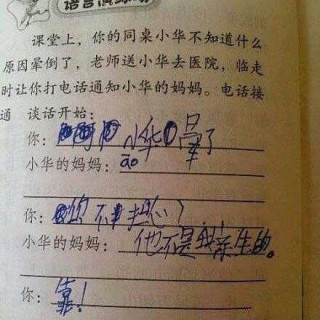 语言演练场
课堂上，你的同桌小华不知道什么
原因晕倒了，老师送小华去医院，临走
时让你打电话通知小华的妈妈。电话接
通 谈话开始：
你：阿 小华 晕了
小华的妈妈：ao
你：你不担心？
小华的妈妈：他不是我亲生的。
你：靠！